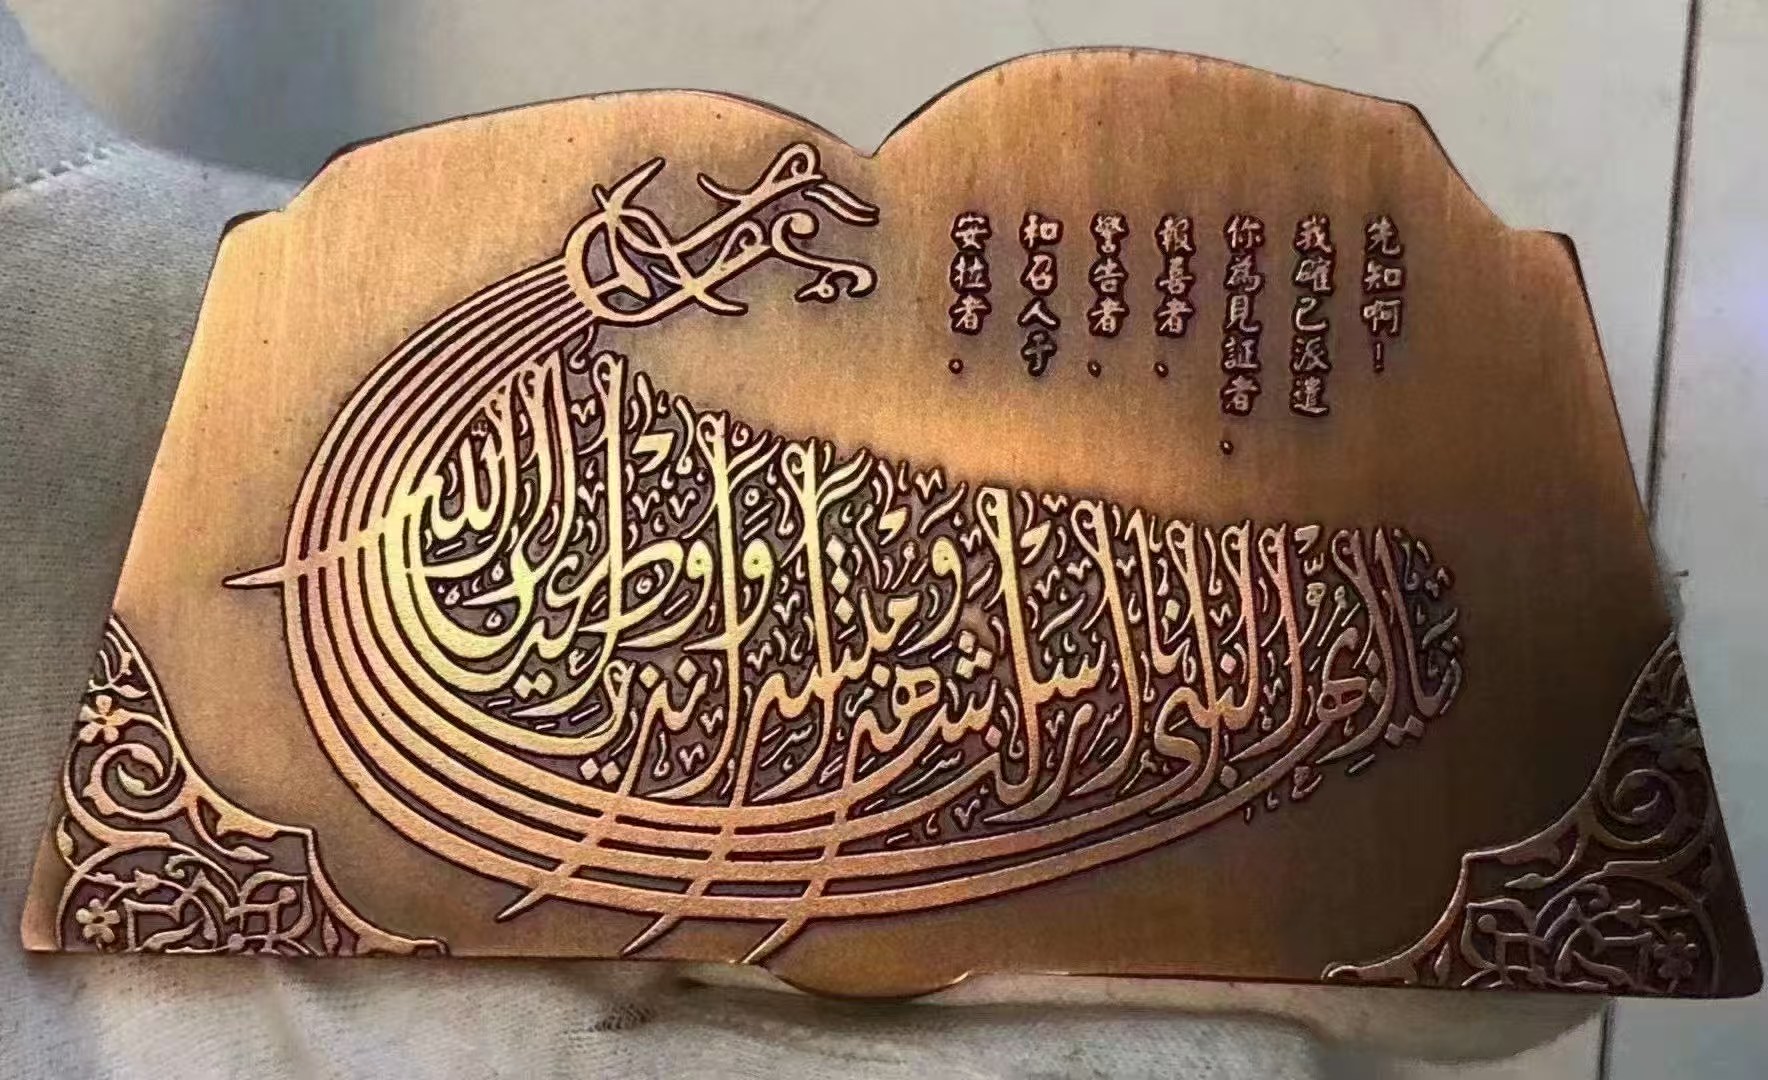 先知啊！
我確已派遣
你為見証者、
報喜者、
警告者、
和召人于
安拉者、
يأيها النبي إنا أرسلنك شهدا ومبشرا ونذيرا وداعيا إلى الله